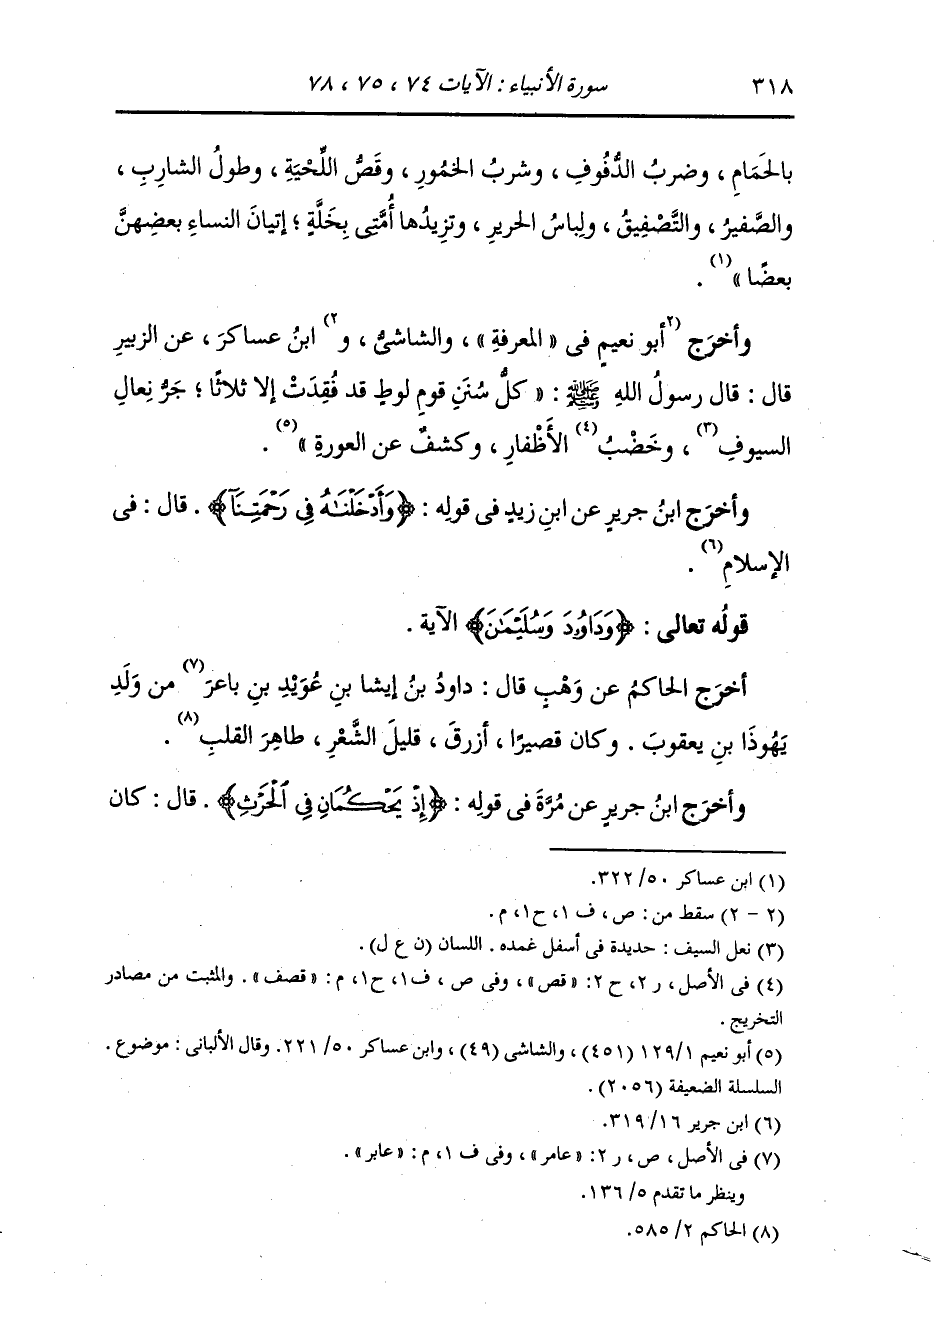 ٣١٨ سورة الأنبياء : الآيات ٧٤ ، ٧٥ ، ٧٨
بالحَمَامِ ، وضربُ الدُّفُوفِ ، وشربُ الخمُورِ ، وقَصُّ اللِّحْيَةِ ، وطولُ الشارِبِ ،
والصَّفيرُ ، والتَّصْفِيقُ ، ولِباسُ الحريرِ ، وتزِيدُها أُمَّتِى بِخَلَّةٍ ؛ إتيانَ النساءِ بعضِهنَّ
بعضًا »(١) .
وأخرَج (٢أبو نعيمٍ فى « المعرفةِ » ، والشاشىُّ ، و٢) ابنُ عساكرَ ، عن الزبيرِ
قال : قال رسولُ اللهِ ﷺ : « كلُّ سُنَنِ قومِ لوطٍ قد فُقِدَتْ إلا ثلاثًا ؛ جَرُّ نِعالِ
السيوفِ(٣) ، وخَضْبُ(٤) الأَظْفارِ ، وكشفٌ عن العورةِ »(٥) .
وأخرَج ابنُ جريرٍ عن ابنِ زيدٍ فى قولِه : ﴿وَأَدْخَلْنَـٰهُ فِى رَحْمَتِنَآ﴾ . قال : فى
الإسلامِ(٦) .
قولُه تعالى : ﴿وَدَاوُۥدَ وَسُلَيْمَـٰنَ﴾ الآية .
أخرَج الحاكمُ عن وَهْبٍ قال : داودُ بنُ إيشا بنِ عُوَيْدِ بنِ باعرَ(٧) من وَلَدِ
يَهُوذَا بنِ يعقوبَ . وكان قصيرًا ، أزرقَ ، قليلَ الشَّعْرِ ، طاهِرَ القلبِ(٨) .
وأخرَج ابنُ جريرٍ عن مُرَّةَ فى قولِه : ﴿إِذْ يَحْكُمَانِ فِى ٱلْحَرْثِ﴾ . قال : كان
(١) ابن عساكر ٥٠/ ٣٢٢.
(٢ - ٢) سقط من : ص ، ف ١، ح١، م.
(٣) نعل السيف : حديدة فى أسفل غمده . اللسان (ن ع ل) .
(٤) فى الأصل ، ر ٢، ح ٢: « قص » ، وفى ص ، ف١، ح١، م : « قصف » . والمثبت من مصادر
التخريج .
(٥) أبو نعيم ١٢٩/١ (٤٥١) ، والشاشى (٤٩) ، وابن عساكر ٥٠/ ٢٢١. وقال الألبانى : موضوع .
السلسلة الضعيفة (٢٠٥٦) .
(٦) ابن جرير ١٦/ ٣١٩.
(٧) فى الأصل ، ص ، ر ٢: « عامر » ، وفى ف ١، م : « عابر » .
وينظر ما تقدم ٥/ ١٣٦.
(٨) الحاكم ٢/ ٥٨٥.